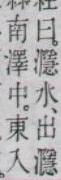 曰。濦水、出濦
南澤中。東入